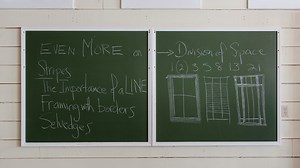 EVEN MORE on
Stripes
The Importance of a LINE
Framing with borders
Selvedges
→ Division of Space
1 (2) 3 5 8 13 21